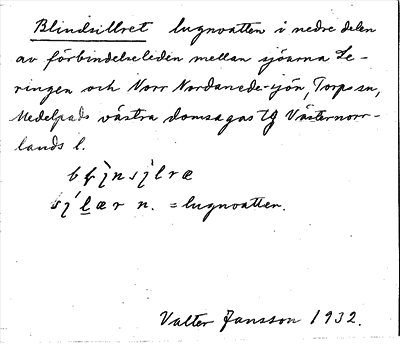 Blindsillret lugnvatten i nedre delen
av förbindelseleden mellan sjöarna Le-
ringen och Norr Nordanede-sjön, Torps sn,
Medelpads västra domsagas tg Västernorr-
lands l.
n. = lugnvatten.
Valter Jansson 1932.